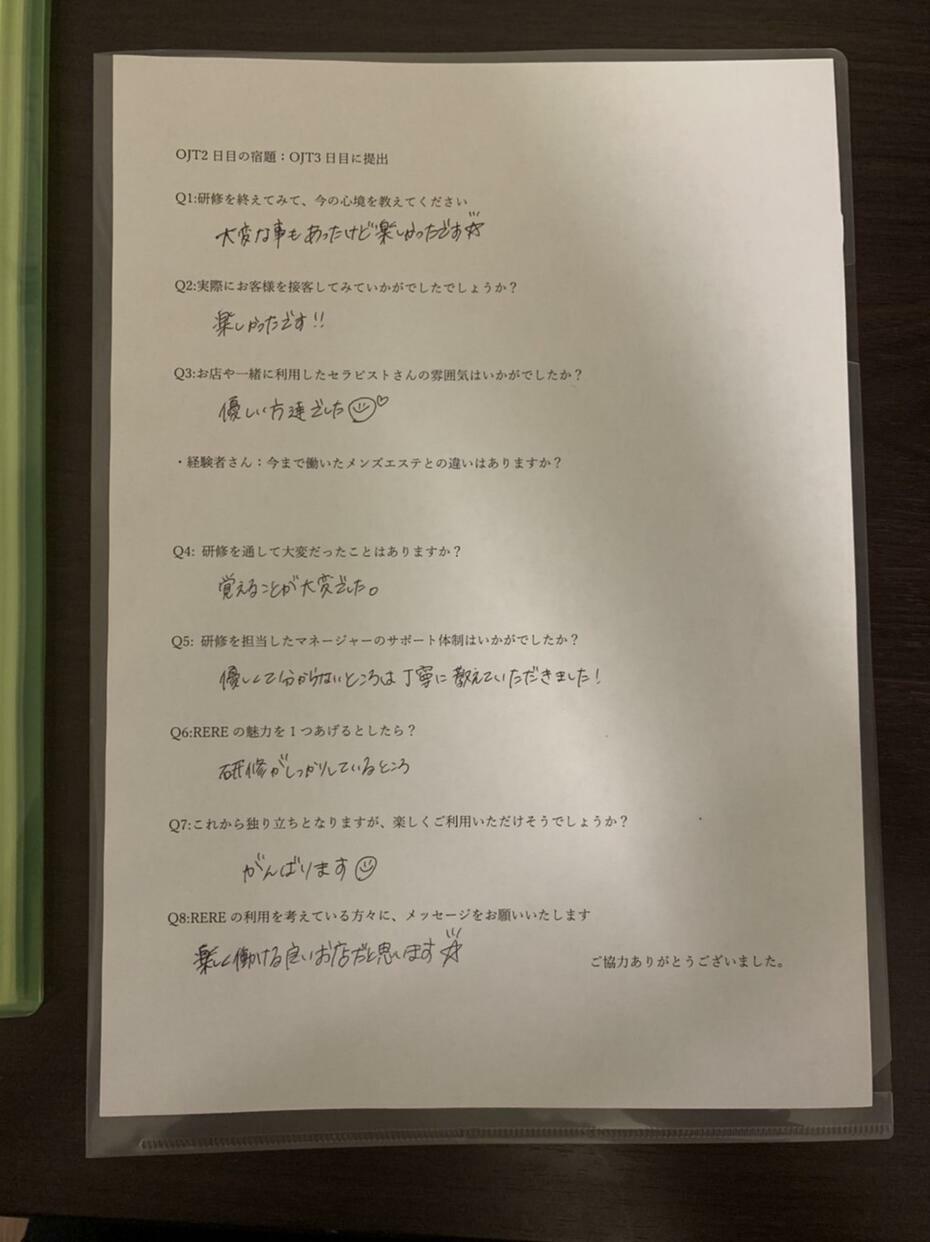 OJT2日目の宿題：OJT3日目に提出
Q1:研修を終えてみて、今の心境を教えてください
大変な事もあったけど楽しかったです☆
Q2:実際にお客様を接客してみていかがでしたでしょうか？
楽しかったです!!
Q3:お店や一緒に利用したセラピストさんの雰囲気はいかがでしたか？
優しい方達でした
・経験者さん：今まで働いたメンズエステとの違いはありますか？
Q4: 研修を通して大変だったことはありますか？
覚えることが大変でした。
Q5: 研修を担当したマネージャーのサポート体制はいかがでしたか？
優しくて分からないところは丁寧に教えていただきました!
Q6:REREの魅力を1つあげるとしたら？
研修がしっかりしているところ
Q7:これから独り立ちとなりますが、楽しくご利用いただけそうでしょうか？
がんばります
Q8:REREの利用を考えている方々に、メッセージをお願いいたします
楽しく働ける良いお店だと思います☆
ご協力ありがとうございました。